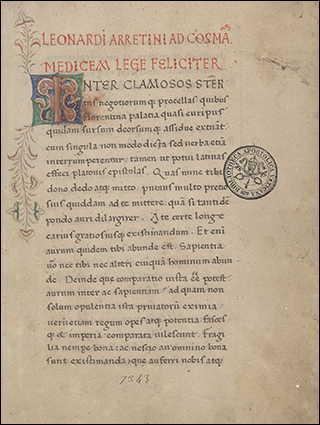 LEONARDI ARRETINI AD COSMĀ
MEDICEM LEGE FELICITER
INTER CLAMOSOS STRE
pitus negotiorumq procellas quibus
florentina palatia quasi euripus
quidam sursum deorsumq assidue extuāt
cum singula non modo dicta sed verba etiā
interrumperentur: tamen ut potui latinas
effeci platonis epistolas. Quas nunc tibi
dono dedo atq mitto: putans multo preti
sius quiddam ad te mittere quā si tantidē
pondo auri dilargirer. A te certe longe
carius gratiosiusq existimandum. Et eni
aurum quidem tibi abunde est. Sapientia
uō nec tibi nec alteri cuiquā hominum abun
de. Deinde que comparatio iusta eē potest
aurum inter ac sapientiam: ad quam non
solum opulentia ista priuatorū eximia
uerū etiam regum opes atq potentia fasces
q & imperia comparata uilescunt. Fragi
lia nempe bona (ac nescio an omnino bona
sunt existimanda) que auferri nobis atq
1343
BIBLIOTHECA APOSTOLICA VATICANA